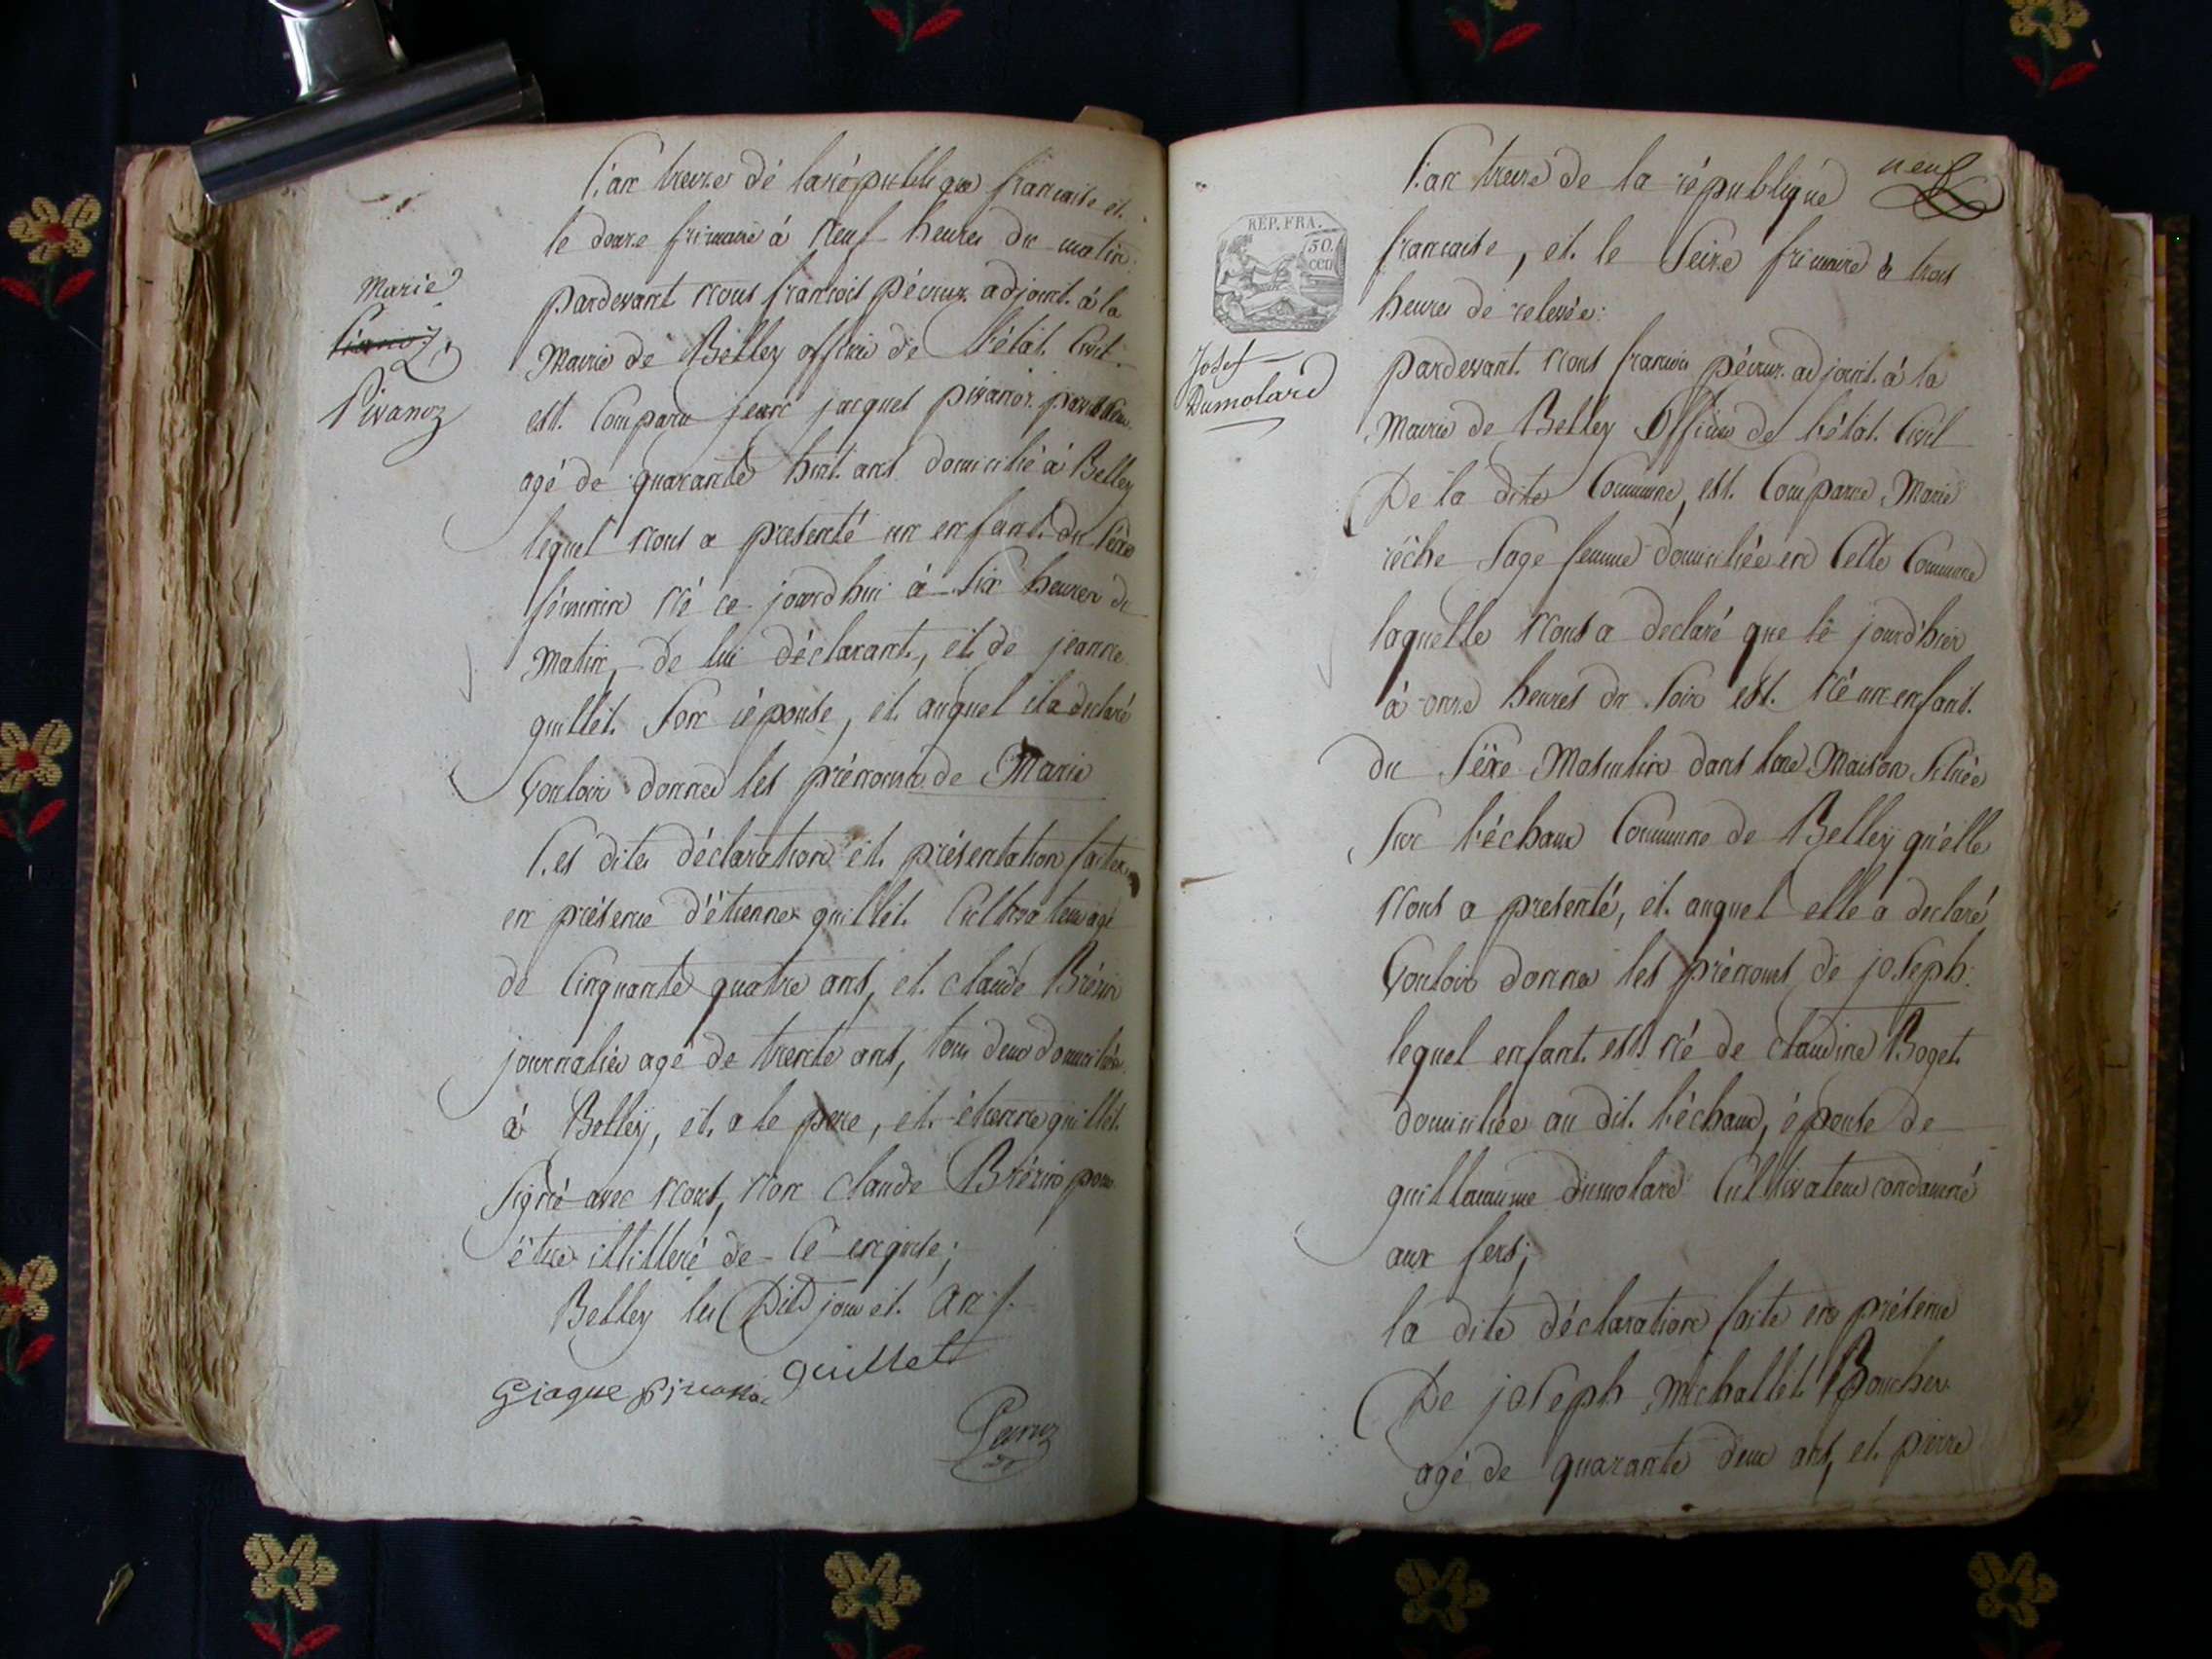 L'an treize de la république francaise et
le douze frimaire à neuf heures du matin
pardevant nous francois pécruz adjoint à la
Marie
Mairie de Belley officier de l'état Civil
Pivanoz
est Comparu jean jacques pivanoz
agé de quarante huit ans domicilié à Belley
lequel nous a presenté un enfant du séxe
féminin né ce jourd'hui à Six heures du
matin, de lui déclarant, et de jeanne
guillet Son épouse, et auquel il a declaré
Vouloir donner les prénoms de Marie
Les dites déclaration et présentation faites
en présence d'étienne guillet Cultivateur agé
de Cinquante quatre ans, et claude Brézin
journalier agé de trente ans, tous deux domiciliés
à Belley, et a le pere, et étienne guillet
Signé avec nous, non claude Brézin pour
être illitteré de ce enquis;
Belley les Dits jour et an f.
Gjaque pivanoz guillet
neuf
L'an treize de la république
REP. FRA.
50. cen
francaise, et le Seize frimaire à trois
heures de relevée:
Josef
Dumolard
pardevant nous francois pécruz adjoint à la
Mairie de Belley Officier de l'état Civil
De la dite Commune, est Comparue Marie
réche Sage femme domiciliée en Cette Commune
laquelle nous a declaré que le jourd'hier
à onze heures du Soir est né un enfant
du Séxe Masculin dans une Maison Située
Sur l'échaud Commune de Belley qu'elle
nous a presenté, et auquel elle a declaré
Vouloir donner les prénoms de joSeph.
lequel enfant est né de claudine Boget
domiciliée au dit l'échaud, épouse de
guillaume dumolard Cultivateur condamné
aux fers;
la dite déclaration faite en présence
De joSeph michallet Boucher
agé de quarante deux ans, et pierre